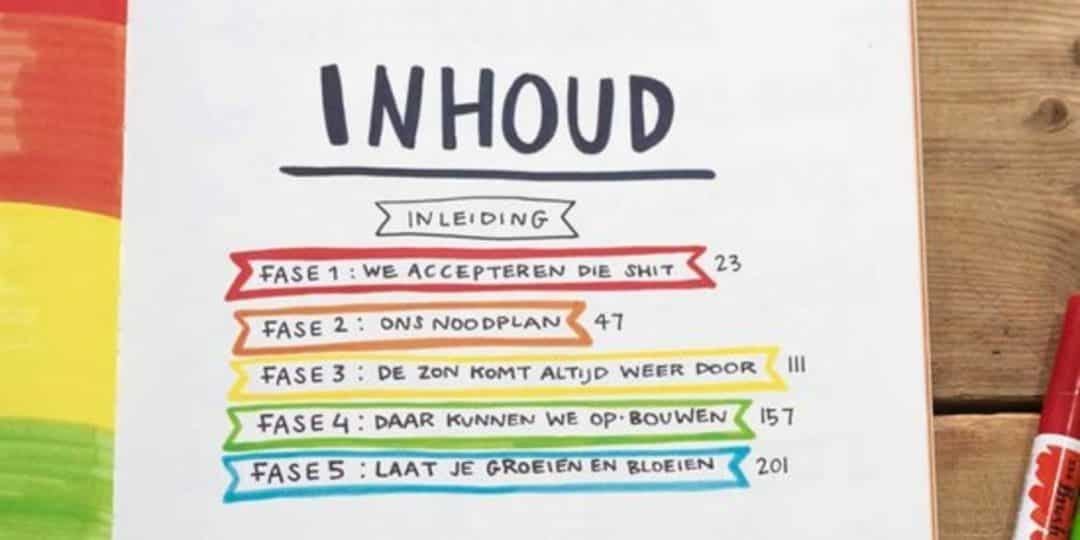 INHOUD
INLEIDING
FASE 1: WE ACCEPTEREN DIE SHIT 23
FASE 2: ONS NOODPLAN 47
FASE 3: DE ZON KOMT ALTIJD WEER DOOR 111
FASE 4: DAAR KUNNEN WE OP·BOUWEN 157
FASE 5: LAAT JE GROEIEN EN BLOEIEN 201
Brush